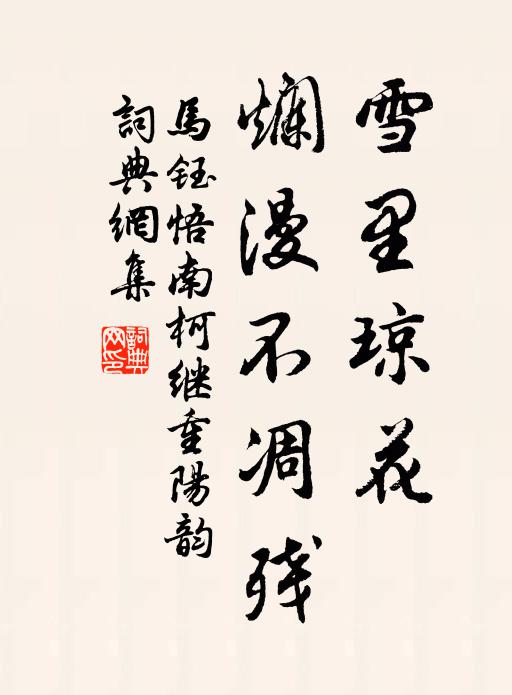 雪里琼花
爛漫不凋残
馬鈺悟南柯继重陽韵
詞典網集
詞典網印